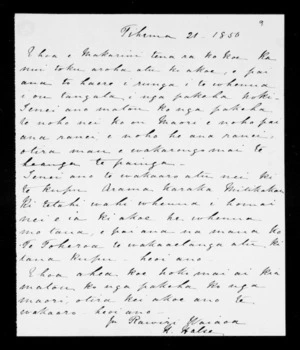 9
21 1850
E hoa e Makarini tena ra ko koe. Ka
nui toku aroha atu ki a koe, e pai
ana to haere i runga i to whenua
i on tangata, nga pakeha hoki.
Tenei ano matou ko nga pakeha
te noho nei ko on Maori e noho pai
ana ranei e noho he ana ranei
otira man e wakarongo mai te
te painga.
Tenei ano te wakaaro atu nei ki
to kupu Arama Karaka
ki tetahi wahi whenua e homai
nei e ia ki a koe he whenua
mo tana, e pai ana na mana ko
Te Toheroa te wakaaetanga atu ki
tana kupu. heoi ano.
E hoa ahea koe hoki mai ai kia
matou ko nga pakeha ko nga
maori, otira kei a koe ano te
wakaaro heoi ano.
H. Halse